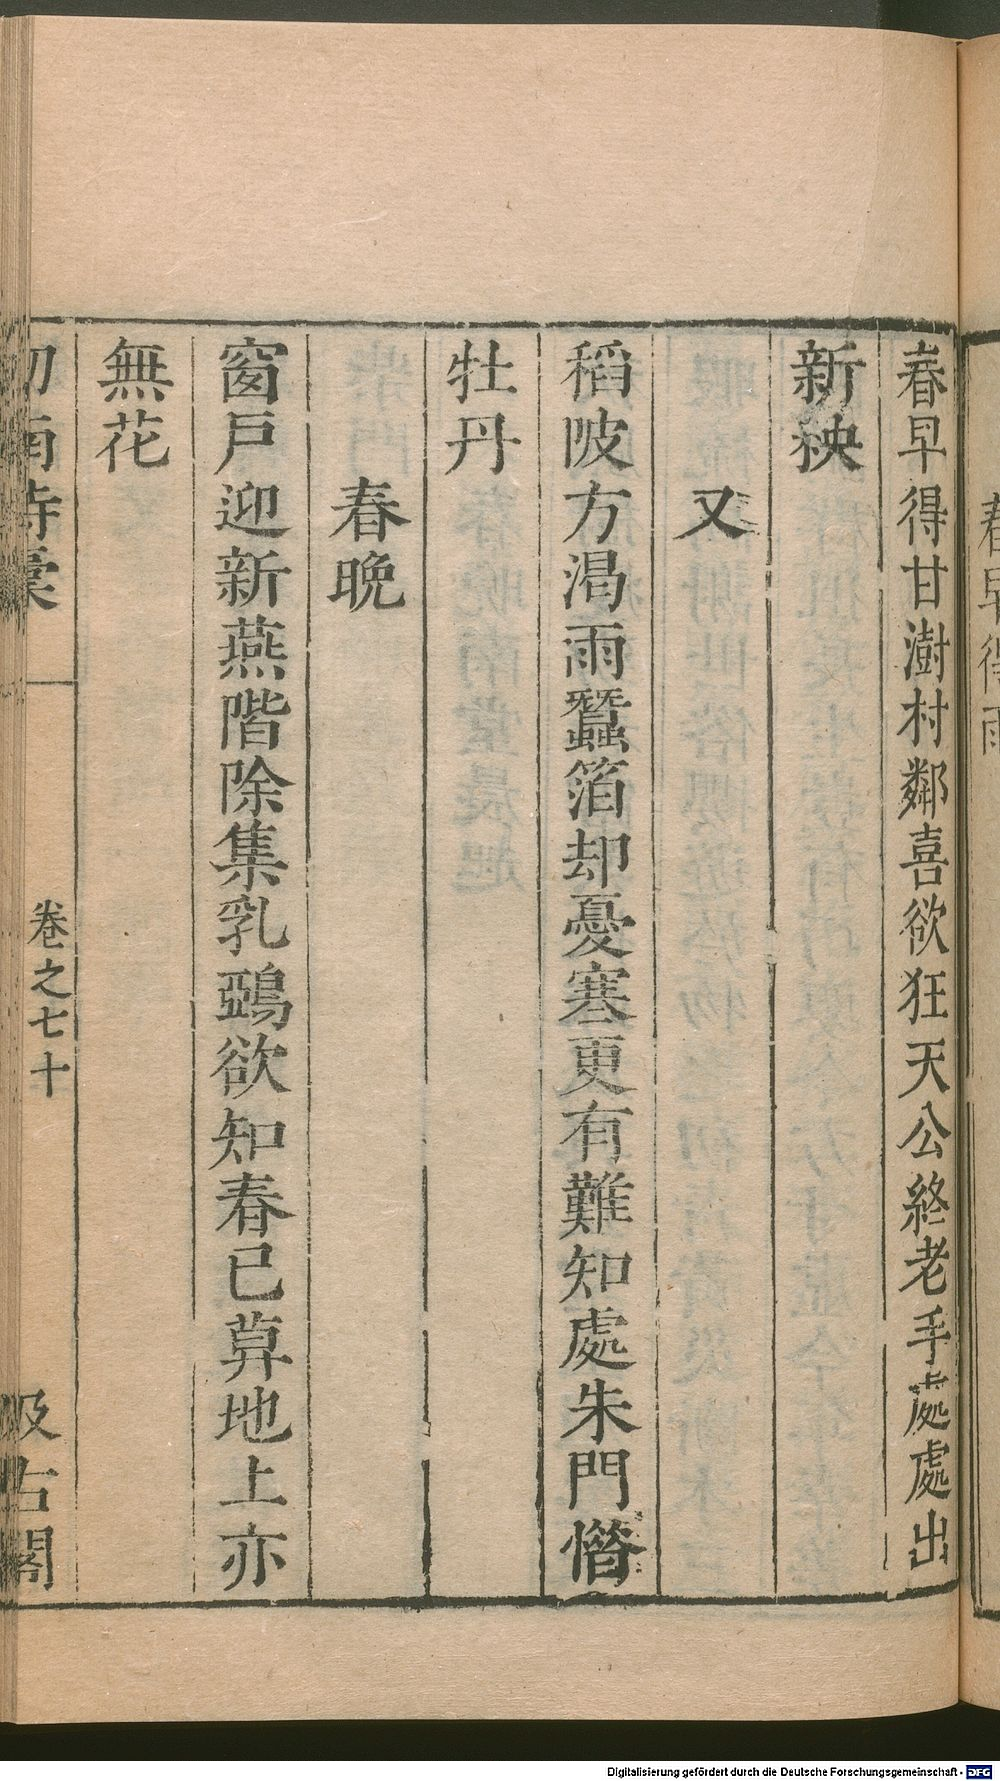 春早得雨
春早得甘澍村鄰喜欲狂天公終老手處處出
新秧
又
稻陂方渴雨蠶箔却憂寒更有難知處朱門惜
牡丹
春晚
窗戶迎新燕階除集乳鵶欲知春已莫地上亦
無花
劒南詩槀
卷之七十
汲古閣
Digitalisierung gefördert durch die Deutsche Forschungsgemeinschaft - DFG